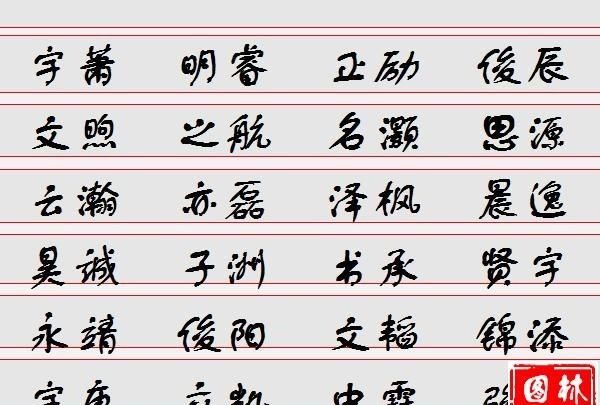 宇萧 明睿 正励 俊辰
文煦 之航 名灏 思源
云瀚 亦磊 泽枫 晨逸
昊诚 子洲 书承 贤宇
永靖 俊阳 文韬 锦添
图林